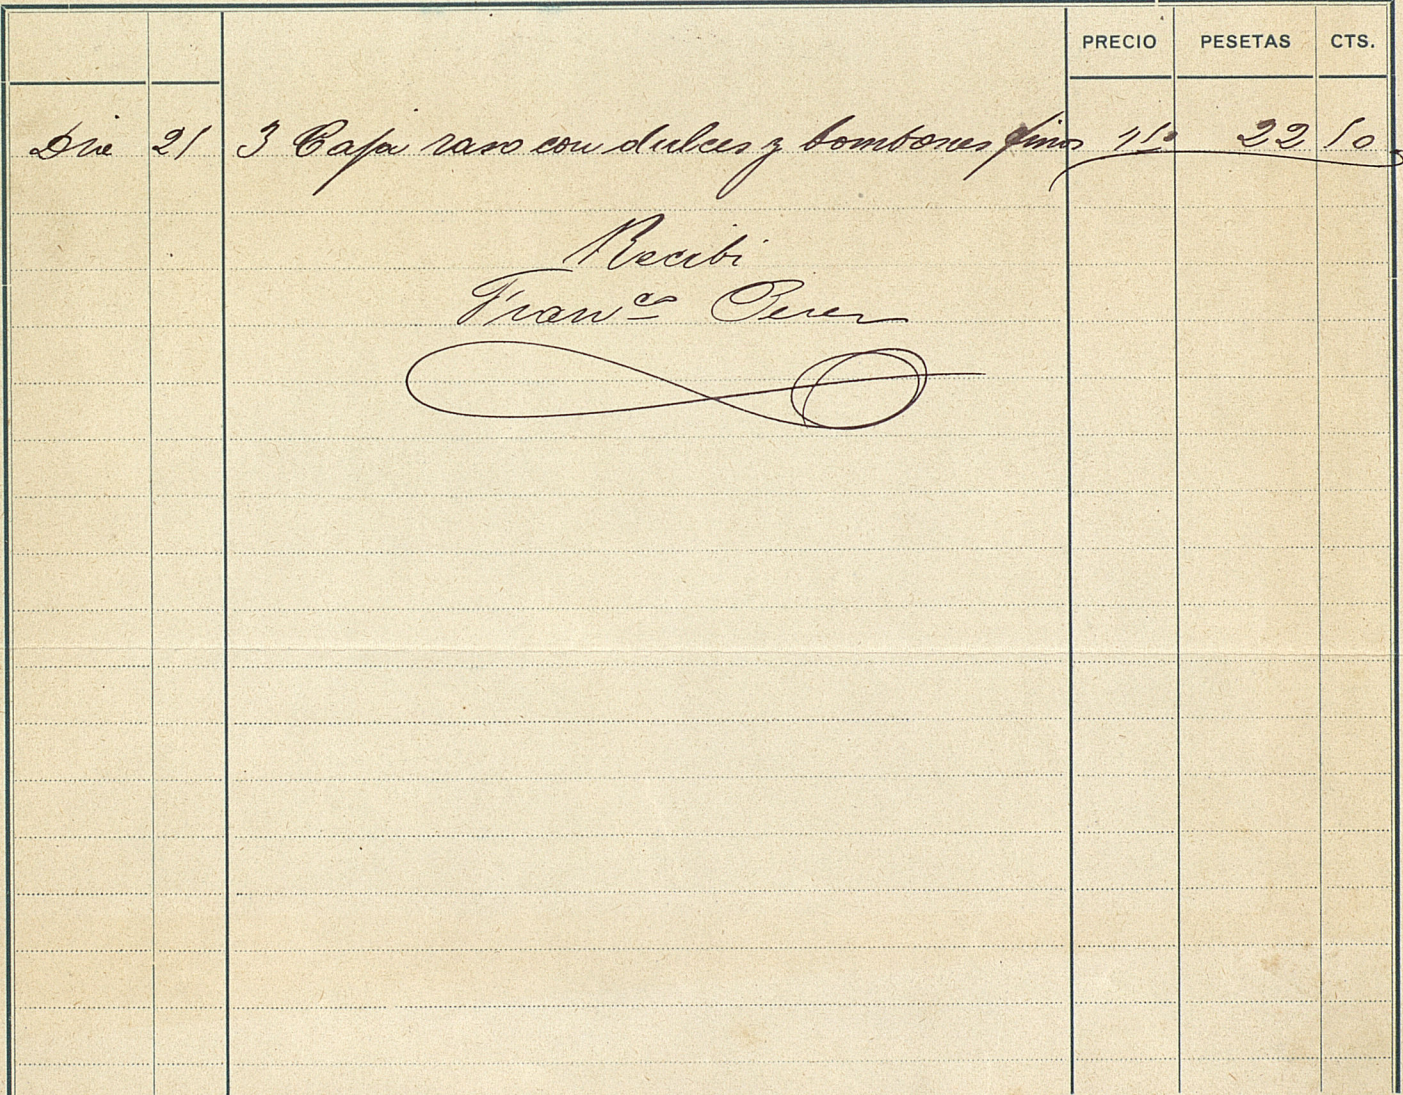 PRECIO PESETAS CTS.
Dic 21 3 Caja raso con dulces y bombones finos 7,50 22 50
Recibi
Franco Perez